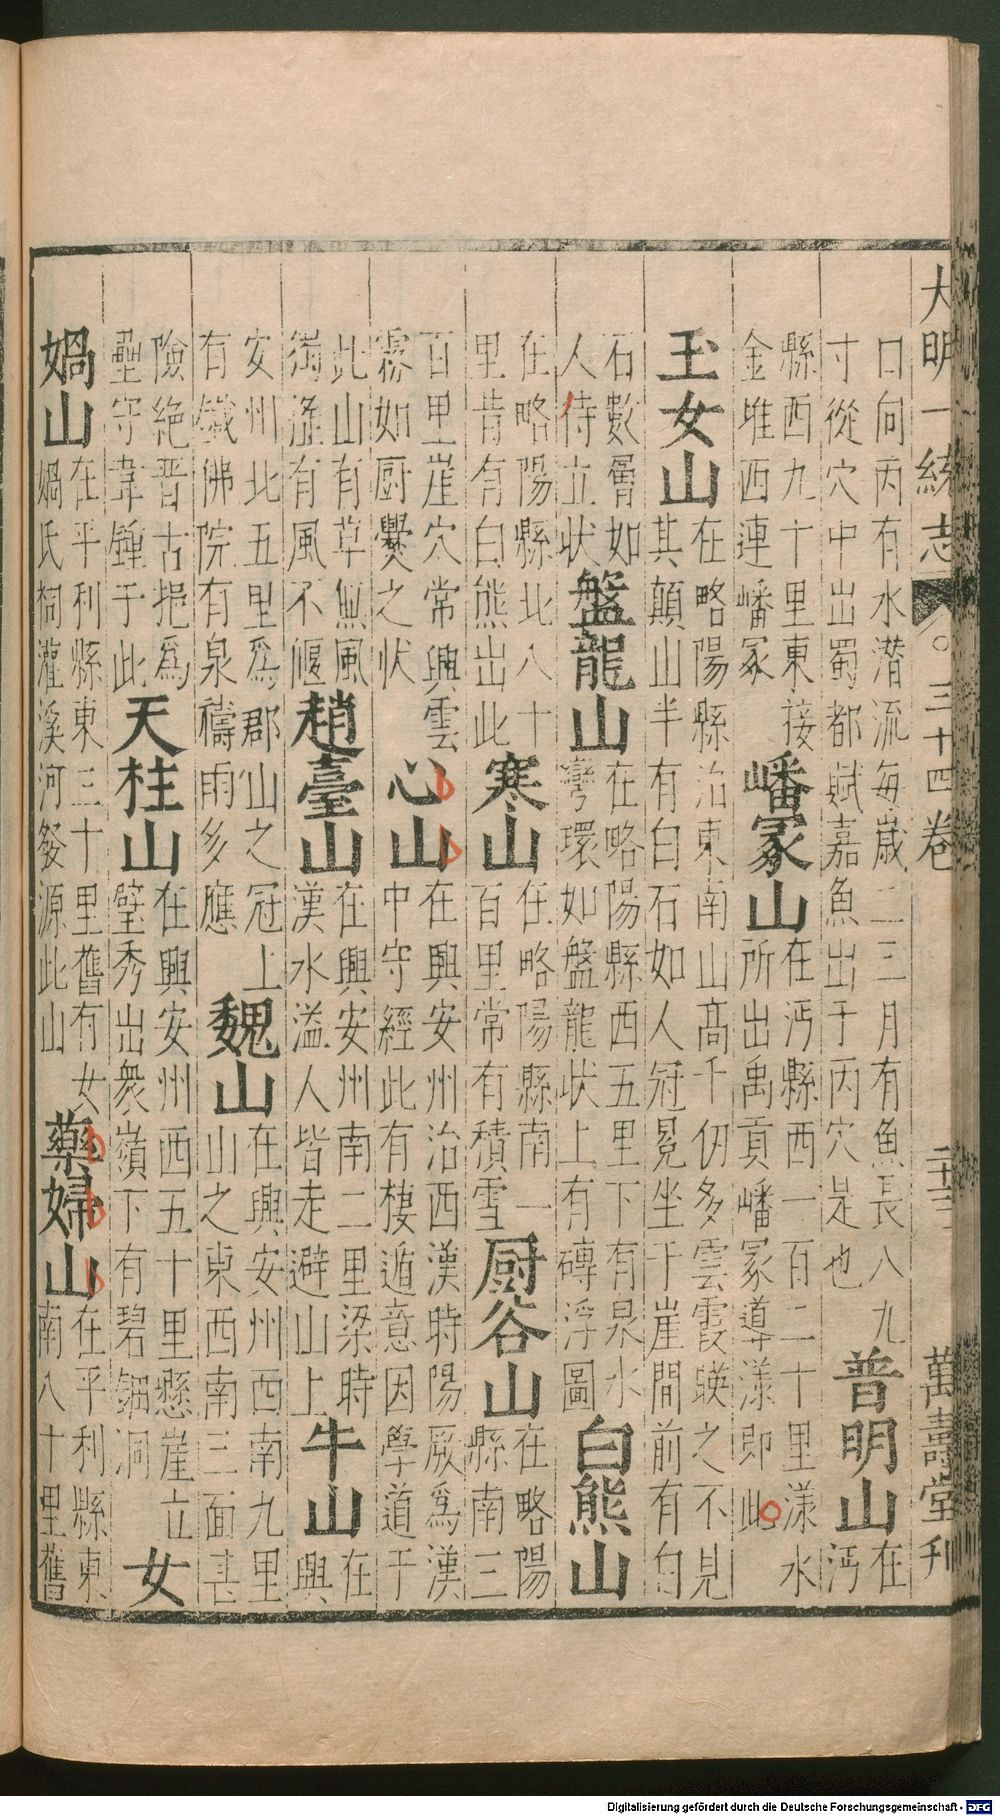 大明一統志 三十四卷 二十三 萬壽堂刊
口向丙有水潛流每歲二三月有魚長八九
寸從穴中出蜀都賦嘉魚出于丙穴是也
普明山
在
沔
縣西九十里東接
金堆西連嶓冢
嶓冢山
在沔縣西一百二十里漾水
所出禹貢嶓冢導漾即此
玉女山
在略陽縣治東南山高千仞多雲霞暎之不見
其顛山半有白石如人冠冕坐于崖間前有白
石數層如
人侍立狀
盤龍山
在略陽縣西五里下有泉水
灣環如盤龍狀上有磚浮圖
白熊山
在略陽縣北八十
里肯有白熊出此
寒山
在略陽縣南一
百里常有積雪
厨谷山
在略陽
縣南三
百里崖穴常興雲
霧如厨爨之状
心山
在興安州治西漢時陽厥爲漢
中守經此有棲遁意因學道于
此山有草無風
獨搖有風不偃
趙臺山
在興安州南二里梁時
漢水溢人皆走避山上
牛山
在
興
安州北五里爲郡山之冠上
有鐵佛院有泉禱雨多應
魏山
在興安州西南九里
山之東西南三面甚
險絶晉古挹爲
壘守韋鍾于此
天柱山
在興安州西五十里懸崖立
壁秀出衆嶺下有碧鈿洞
女
媧山
在平利縣東三十里舊有女
媧氏祠灌溪河發源此山
藥婦山
在平利縣東
南八十里舊
Digitalisierung gefördert durch die Deutsche Forschungsgemeinschaft - DFG